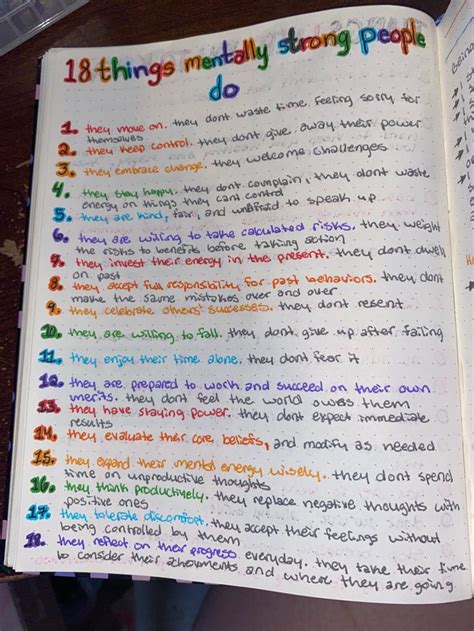 18 things mentally strong people
do
1. they move on. they dont waste time feeling sorry for
themselves
2. they keep control. they dont give away their power
3. they embrace change. they welcome challenges
4. they stay happy. they dont complain, they dont waste
energy on things they cant control
5. they are kind, fair, and unafraid to speak up
6. they are willing to take calculated risks. they weight
the risks to benefits before taking action
7. they invest their energy in the present. they dont dwell
on past
8. they accept full responsibility for past behaviors. they dont
make the same mistakes over and over
9. they celebrate others' successes. they dont resent
10. they are willing to fail. they dont give up after failing
11. they enjoy their time alone. they dont fear it
12. they are prepared to work and succeed on their own
merits. they dont feel the world owes them
13. they have staying power. they dont expect immediate
results
14. they evaluate their core beliefs, and modify as needed
15. they expand their mental energy wisely. they dont spend
time on unproductive thoughts
16. they think productively. they replace negative thoughts with
positive ones
17. they tolerate discomfort. they accept their feelings without
being controlled by them
18. they reflect on their progress everyday. they take their time
to consider their achievments and where they are going